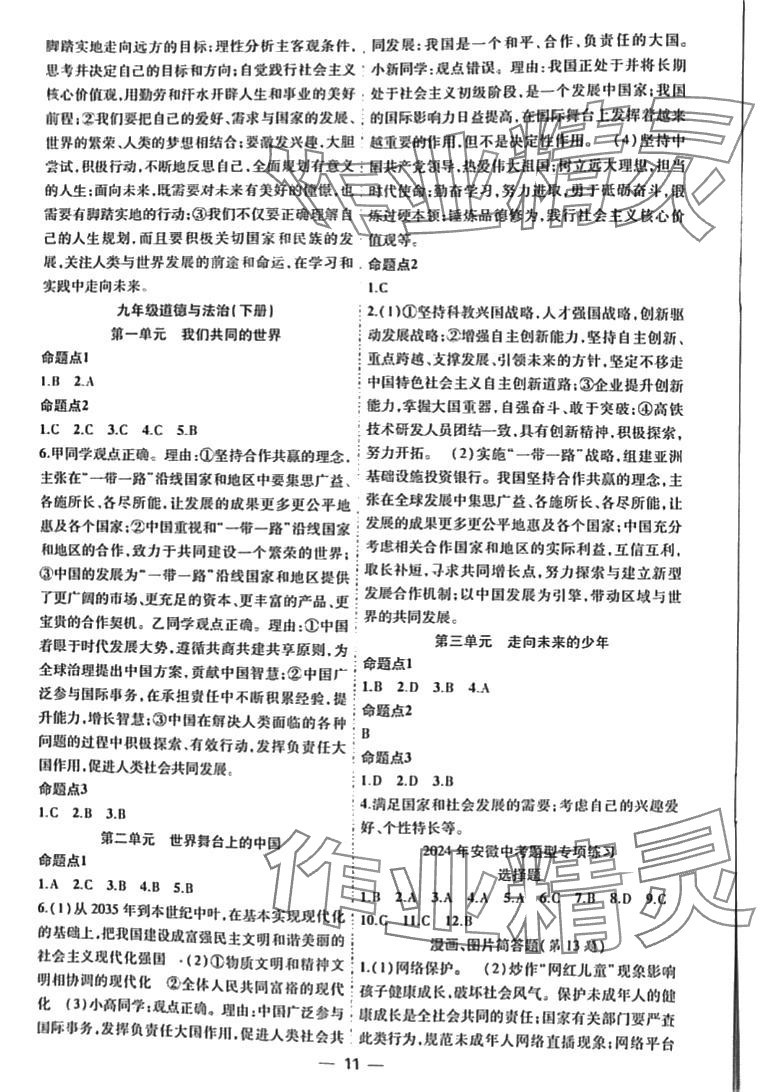 脚踏实地走向远方的目标;理性分析主客观条件,
思考并决定自己的目标和方向;自觉践行社会主义
核心价值观,用勤劳和汗水开辟人生和事业的美好
前程;②我们要把自己的爱好、需求与国家的发展、
世界的繁荣、人类的梦想相结合;要激发兴趣,大胆
尝试,积极行动,不断地反思自己,全面规划有意义
的人生;面向未来,既需要对未来有美好的憧憬,也
要有脚踏实地的行动;③我们不仅要正确理解自
己的人生规划,而且要积极关切国家和民族的发
展,关注人类与世界发展的前途和命运,在学习和
实践中走向未来。
九年级道德与法治(下册)
第一单元 我们共同的世界
命题点1
1.B 2.A
命题点2
1.C 2.C 3.C 4.C 5.B
6.甲同学观点正确。理由:①坚持合作共赢的理念,
主张在“一带一路”沿线国家和地区中要集思广益、
各施所长、各尽所能,让发展的成果更多更公平地
惠及各个国家;②中国重视和“一带一路”沿线国家
和地区的合作,致力于共同建设一个繁荣的世界;
③中国的发展为“一带一路”沿线国家和地区提供
了更广阔的市场、更充足的资本、更丰富的产品、更
宝贵的合作契机。乙同学观点正确。理由:①中国
着眼于时代发展大势,遵循共商共建共享原则,为
全球治理提出中国方案,贡献中国智慧;②中国广
泛参与国际事务,在承担责任中不断积累经验,提
升能力,增长智慧;③中国在解决人类面临的各种
问题的过程中积极探索、有效行动,发挥负责任大
国作用,促进人类社会共同发展。
命题点3
1.C 2.B 3.B
第二单元 世界舞台上的中国
命题点1
1.A 2.C 3.A 4.B 5.B
6.(1)从2035年到本世纪中叶,在基本实现现代化
的基础上,把我国建设成富强民主文明和谐美丽的
社会主义现代化强国 (2)①物质文明和精神文
明相协调的现代化 ②全体人民共同富裕的现代
化 (3)小高同学:观点正确。理由:中国广泛参与
国际事务,发挥负责任大国作用,促进人类社会共
同发展;我国是一个和平、合作、负责任的大国。
小新同学:观点错误。理由:我国正处于并将长期
处于社会主义初级阶段,是一个发展中国家;我国
的国际影响力日益提高,在国际舞台上发挥着越来
越重要的作用,但不是决定性作用。 (4)坚持中
国共产党领导,热爱伟大祖国;树立远大理想,担当
时代使命;勤奋学习,努力进取,勇于砥砺奋斗,锻
炼过硬本领;锤炼品德修为,践行社会主义核心价
值观等。
命题点2
1.C
2.(1)①坚持科教兴国战略,人才强国战略,创新驱
动发展战略;②增强自主创新能力,坚持自主创新、
重点跨越、支撑发展、引领未来的方针,坚定不移走
中国特色社会主义自主创新道路;③企业提升创新
能力,掌握大国重器,自强奋斗、敢于突破;④高铁
技术研发人员团结一致,具有创新精神,积极探索,
努力开拓。 (2)实施“一带一路”战略,组建亚洲
基础设施投资银行。我国坚持合作共赢的理念,主
张在全球发展中集思广益、各施所长、各尽所能,让
发展的成果更多更公平地惠及各个国家;中国充分
考虑相关合作国家和地区的实际利益,互信互利,
取长补短,寻求共同增长点,努力探索与建立新型
发展合作机制;以中国发展为引擎,带动区域与世
界的共同发展。
第三单元 走向未来的少年
命题点1
1.B 2.D 3.B 4.A
命题点2
B
命题点3
1.D 2.D 3.B
4.满足国家和社会发展的需要;考虑自己的兴趣爱
好、个性特长等。
2024年安徽中考题型专项练习
选择题
1.B 2.A 3.A 4.A 5.C 6.B 7.B 8.D 9.C
10.C 11.C 12.B
漫画、图片简答题(第13题)
1.(1)网络保护。 (2)炒作“网红儿童”现象影响
孩子健康成长,破坏社会风气。保护未成年人的健
康成长是全社会共同的责任;国家有关部门要严查
此类行为,规范未成年人网络直播现象;网络平台
— 11 —
作业精灵
作业精灵